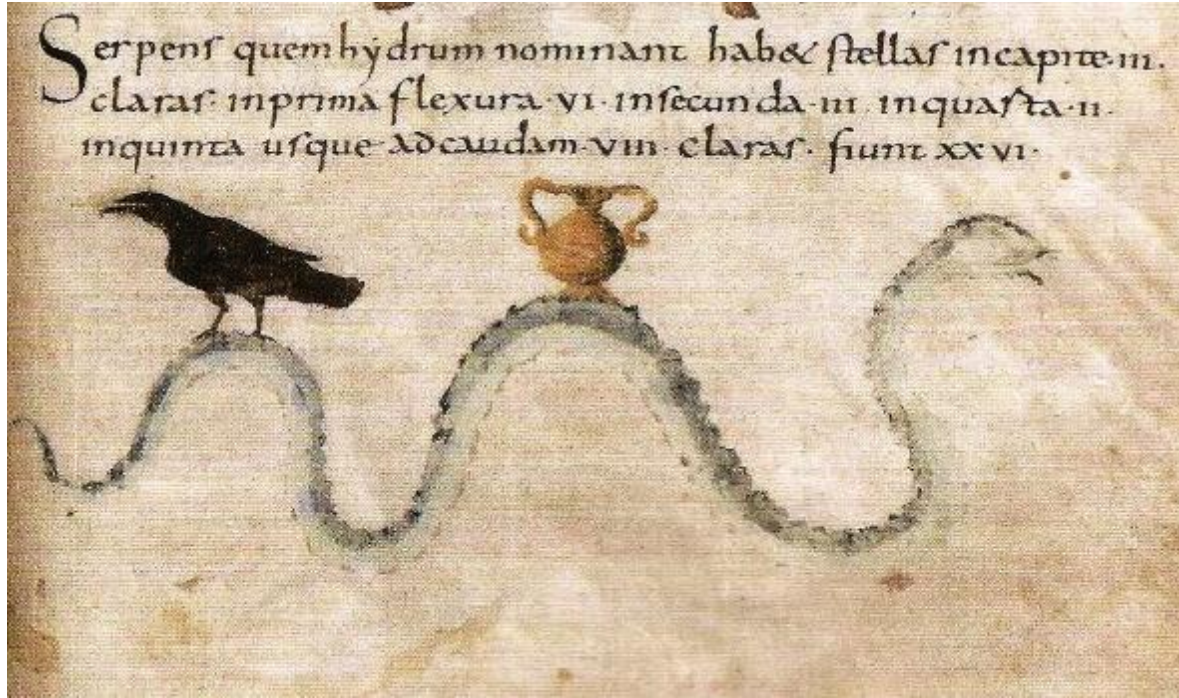 Serpens quem hydrum nominant hab& stellas incapite·iii.
claras· inprima flexura·vi· insecunda·iii· inquarta·ii·
inquinta usque adcaudam·viii· claras· fiunt xxvi·